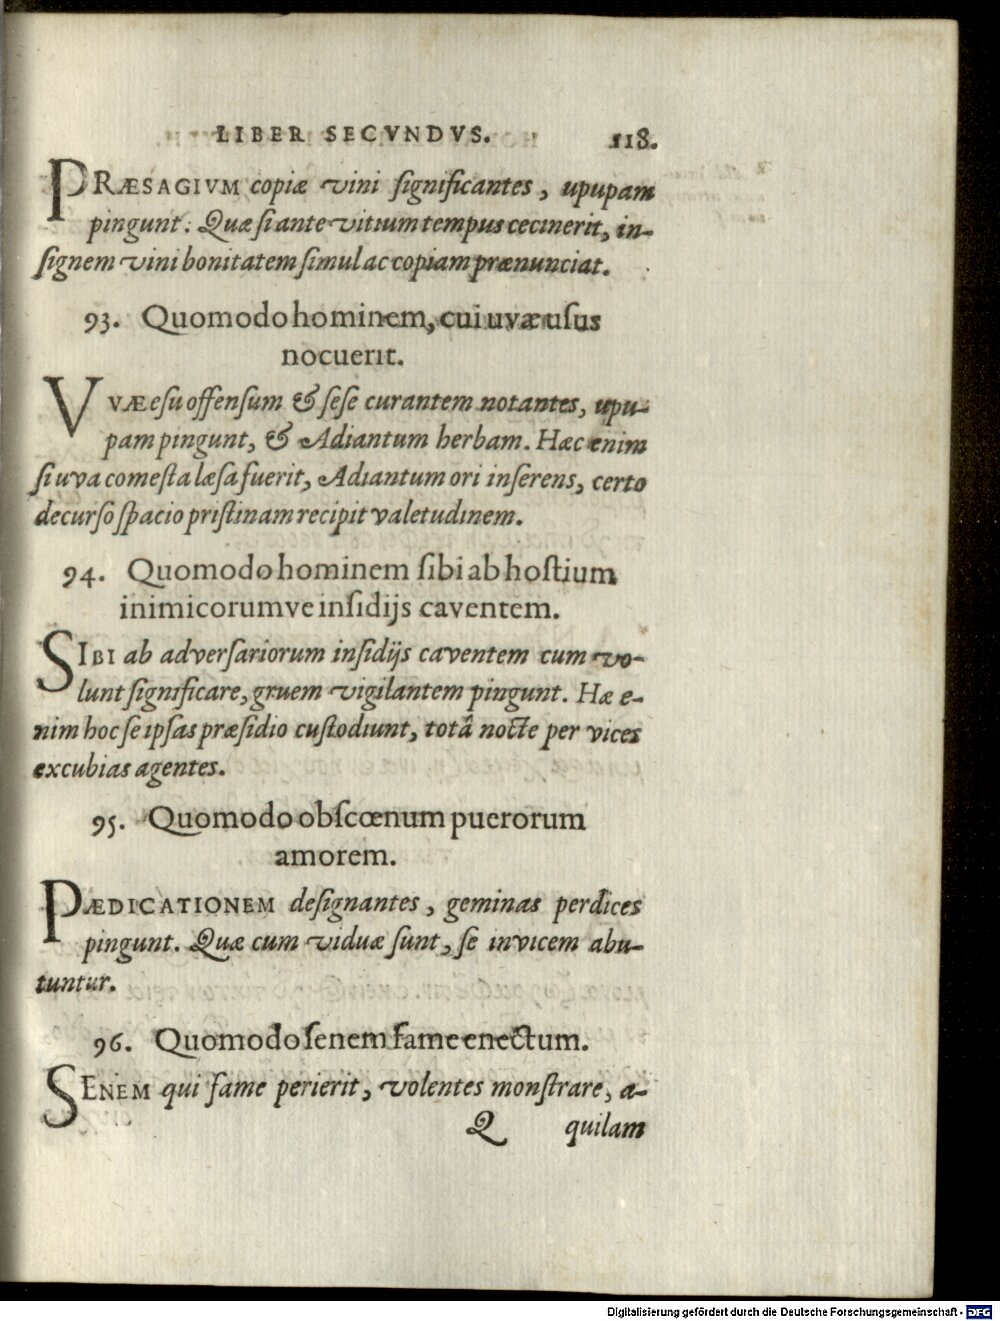 LIBER SECVNDVS. 118.
PRÆSAGIVM copiæ vini significantes, upupam
pingunt. Quæ si ante vitium tempus cecinerit, in-
signem vini bonitatem simul ac copiam prænunciat.
93. Quomodo hominem, cui uvæ usus
nocuerit.
VVÆ esu offensum & sese curantem notantes, upu-
pam pingunt, & Adiantum herbam. Hæc enim
si uva comesta læsa fuerit, Adiantum ori inserens, certo
decurso spacio pristinam recipit valetudinem.
94. Quomodo hominem sibi ab hostium
inimicorumve insidijs caventem.
SIBI ab adversariorum insidijs caventem cum vo-
lunt significare, gruem vigilantem pingunt. Hæ e-
nim hoc se ipsas præsidio custodiunt, totâ nocte per vices
excubias agentes.
95. Quomodo obscœnum puerorum
amorem.
PÆDICATIONEM designantes, geminas perdices
pingunt. Quæ cum viduæ sunt, se invicem abu-
tuntur.
96. Quomodo senem fame enectum.
SENEM qui fame perierit, volentes monstrare, a-
Q quilam
Digitalisierung gefördert durch die Deutsche Forschungsgemeinschaft - DFG